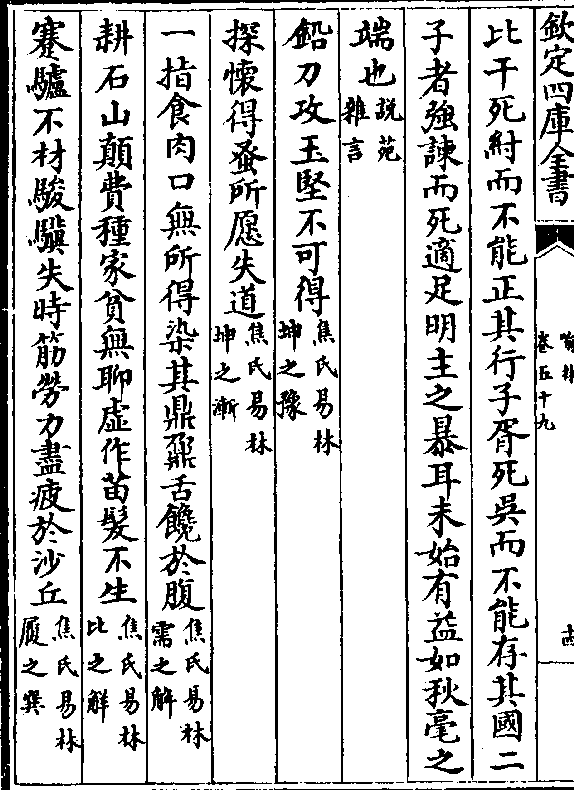 欽定四庫全書
卷五十九
比干死紂而不能正其行子胥死吳而不能存其國二
子者強諫而死適足明主之暴耳未始有益如秋毫之
端也說苑雜言
鉛刀攻玉堅不可得焦氏易林坤之豫
探懷得蚤所愿失道焦氏易林坤之漸
一指食肉口無所得染其鼎鼐舌饞於腹焦氏易林需之解
耕石山顛費種家貧無聊虛作苗髮不生焦氏易林比之觧
蹇驢不材駿驥失時筋勞力盡疲於沙丘焦氏易林履之巽